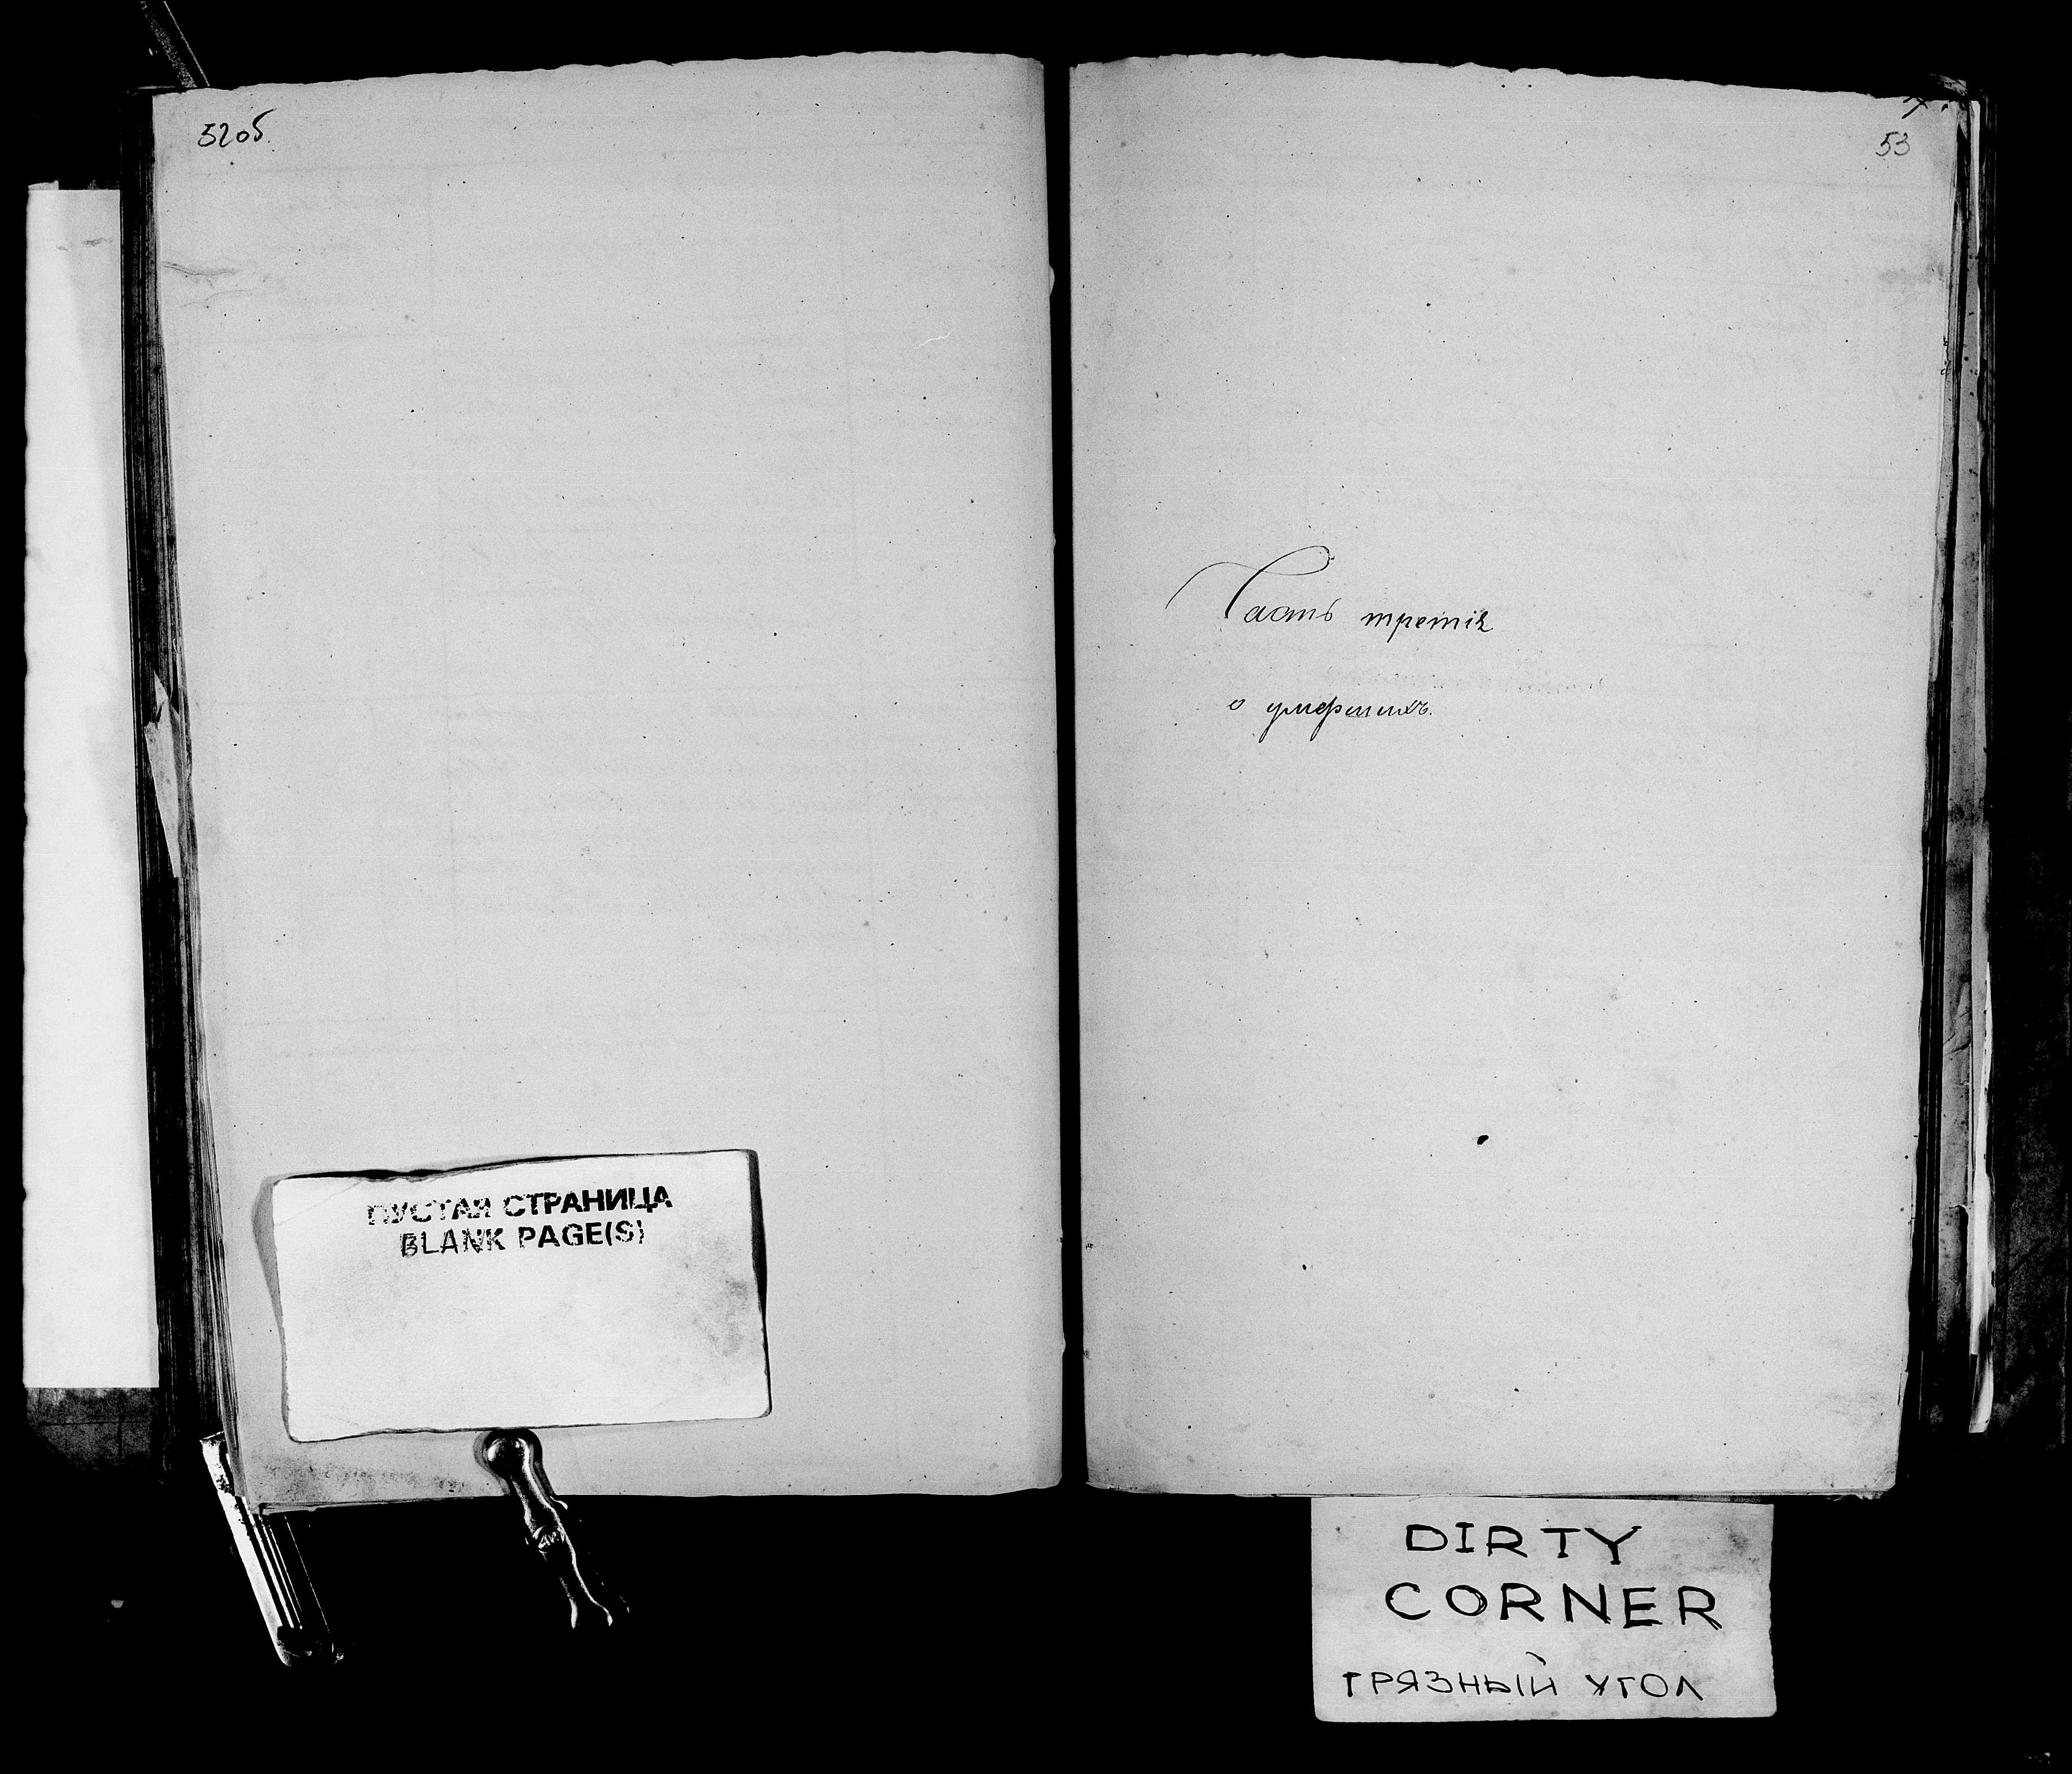 52об.
53
Часть третія
о умершихъ.
ПУСТАЯ СТРАНИЦА
BLANK PAGE(S)
DIRTY
CORNER
ГРЯЗНЫЙ УГОЛ